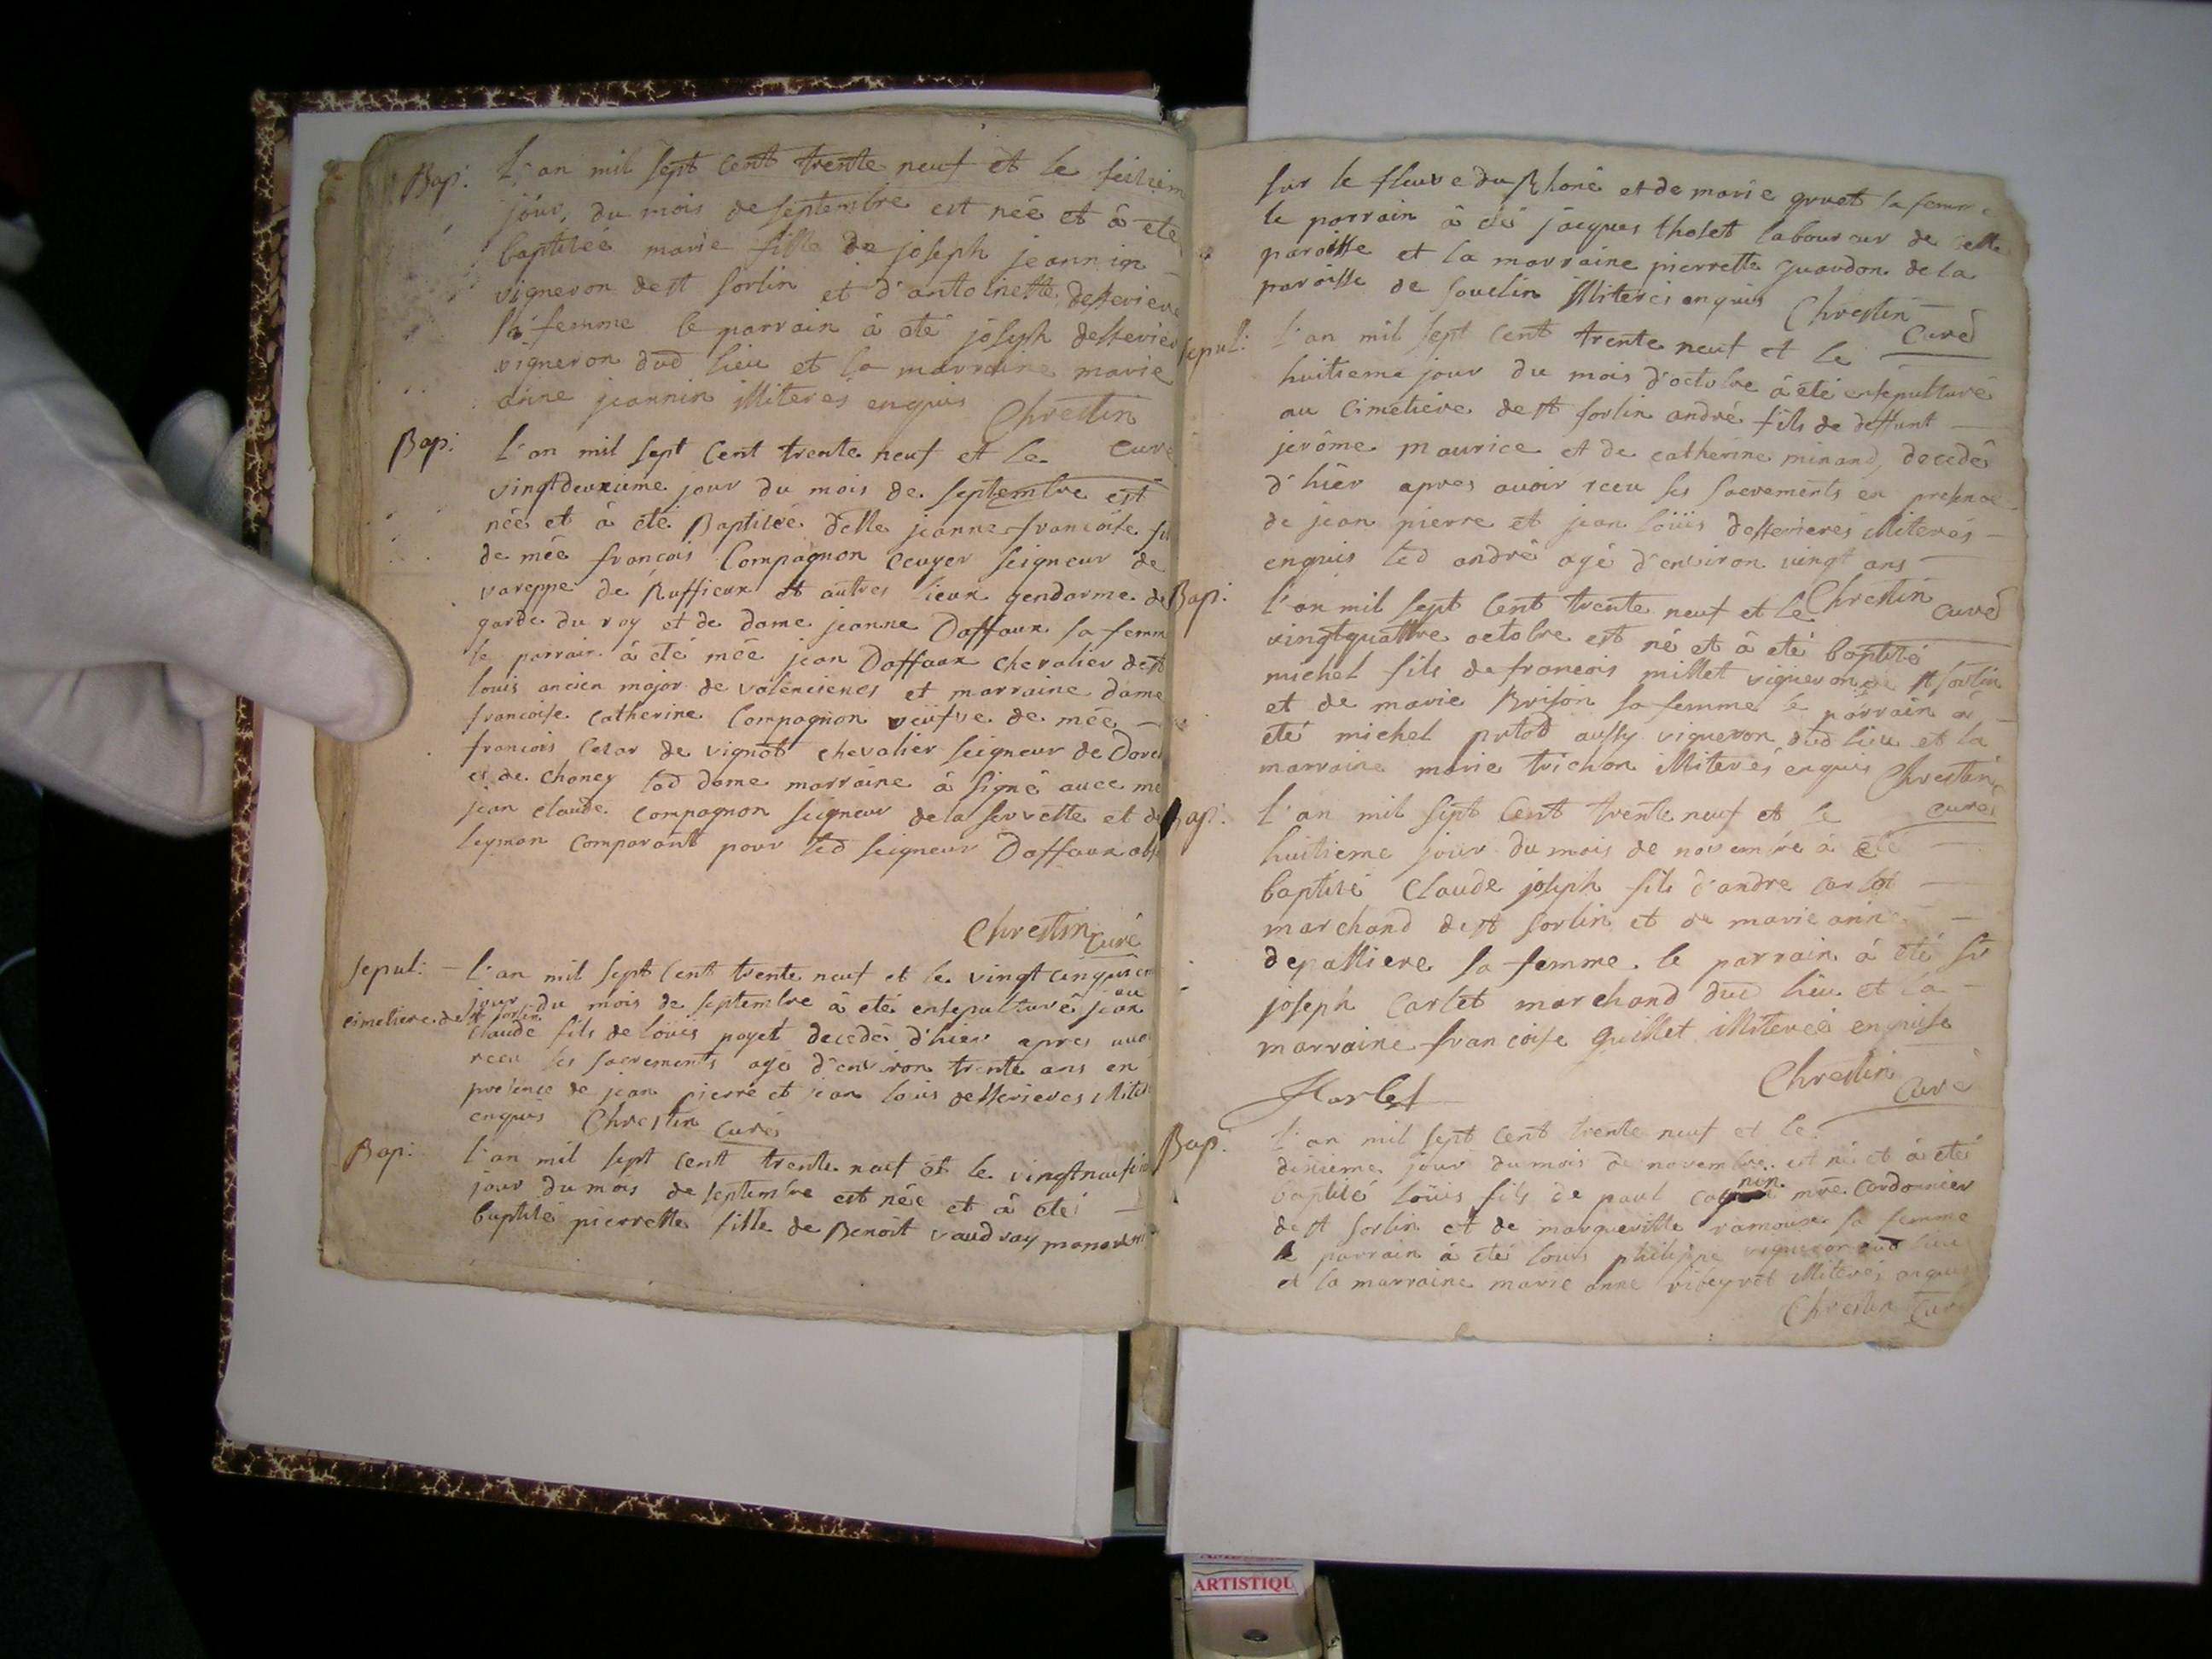 Bap: L'an mil sept cent trente neuf et le seiziem
jour, du mois de septembre est née et à eté
baptisée marie fille de joseph jeannin
vigneron de st sorlin et d'antoinette desseriere
sa femme le parrain à eté joseph desserier
vigneron dud lieu et la marraine marie
anne jeannin illiterés enquis Chrestin
curé
Bap: L'an mil sept cent trente neuf et le
vingtdeuxieme jour du mois de septembre est
née et à eté Baptisée delle jeanne francoise fil
de mre francois Compagnon ecuyer seigneur de
vareppe de Ruffieux et autres lieux gendarme de
garde du roy et de dame jeanne Daffaux sa femm
le parrain à été mre jean Daffaux chevalier de st
louis ancien major de valencienes et marraine dame
francoise catherine Compagnon veufve de mre
francois cesar de vignot chevalier seigneur de Dorch
et de chaney lad dame marraine à signé avec mr
jean claude compagnon seigneur de la servette et de
leyman comparant pour led seigneur Daffaux abs
Chrestin curé
sepul: l'an mil sept cent trente neuf et le vingt cinquiem
jour du mois de septembre à eté ensepulturé au
cimetiere de st sorlin jean
claude fils de loüis payet decedé d'hier apres avoir
receu les sacrements agé d'environ trente ans en
presence de jean pierre et jean louis desserieres illiter
enquis Chrestin curé
Bap: l'an mil sept cent trente neuf et le vingtneufie
jour du mois de septembre est née et à eté
baptisé pierrette fille de Benoît vaudray manoeuvr
sur le fleuve du Rhone et de marie gruet sa femme
le parrain à eté jacques thoset laboureur de cette
paroisse et la marraine pierrette guardon de la
paroisse de souclin illiterés enquis Chrestin
curé
sepul: l'an mil sept cent trente neuf et le
huitieme jour du mois d'octobre à été ensepulturé
au cimetiere de st sorlin andré fils de deffunt
jerôme maurice et de catherine minand, decedé
d'hier apres avoir receu les sacrements en presence
de jean pierre et jean loüis desserieres illiterés
enquis led andré agé d'environ vingt ans
Chrestin curé
Bap: l'an mil sept cent trente neuf et le
vingtquattre octobre est né et à eté baptisé
michel fils de francois millet vigneron de st sorlin
et de marie Brison sa femme le parrain à
eté michel putod aussy vigneron dud lieu et la
marraine marie trichon illiterés enquis Chrestin
curé
Bap: l'an mil sept cent trente neuf et le
huitieme jour du mois de novembre à eté
baptisé Claude joseph fils d'andre carlet
marchand de st sorlin et de marie anne
depalliere sa femme. le parrain à eté sr
joseph carlet marchand dud lieu et la
marraine francoise guillet illiterée enquise
JCarlet Chrestin curé
Bap: l'an mil sept cent trente neuf et le
dixieme jour du mois de novembre est né et à eté
baptisé loüis fils de paul cagnin mre cordonnier
de st sorlin et de margueritte ramouse sa femme
le parrain à eté louis philippe vigneron dud lieu
et la marraine marie anne ribeyrot illiterés enquis
Chrestin curé
ARTISTIQU